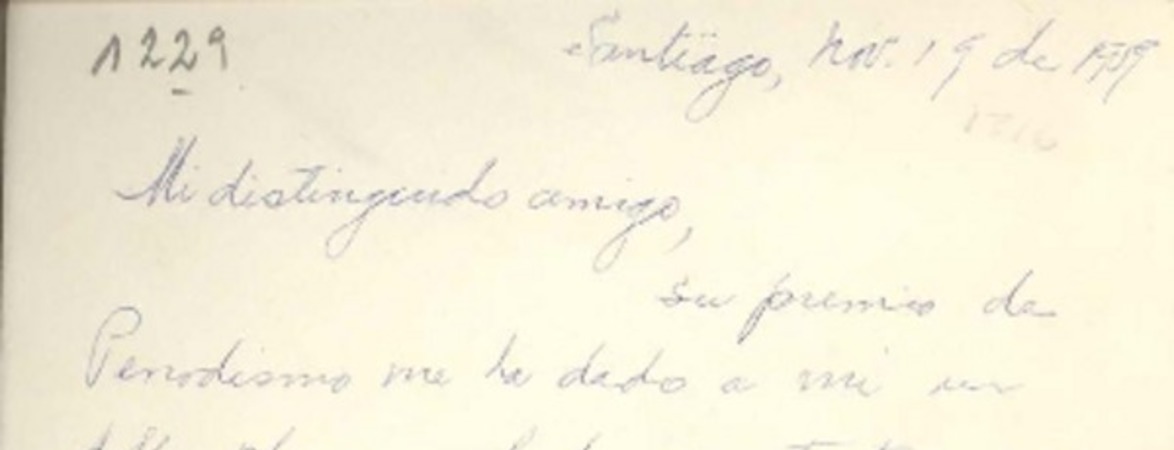 1229
Santiago, Nov. 19 de 1959
Mi distinguido amigo,
su premio de
Periodismo me ha dado a mí un